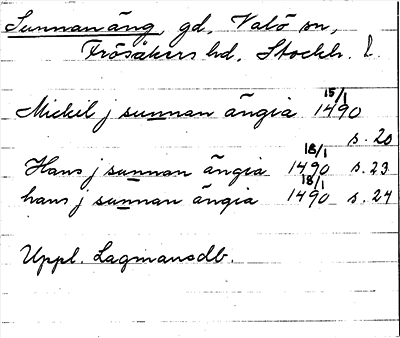 Sunnanäng, gd, Valö sn,
Frösåkers hd, Stockh. l.
Mickil j sunnan ängia 15/1 1490
s. 20
Hans j sunnan ängia 18/1 1490 s. 23
hans j sunnan ängia 18/1 1490 s. 24
Uppl. Lagmansdb.